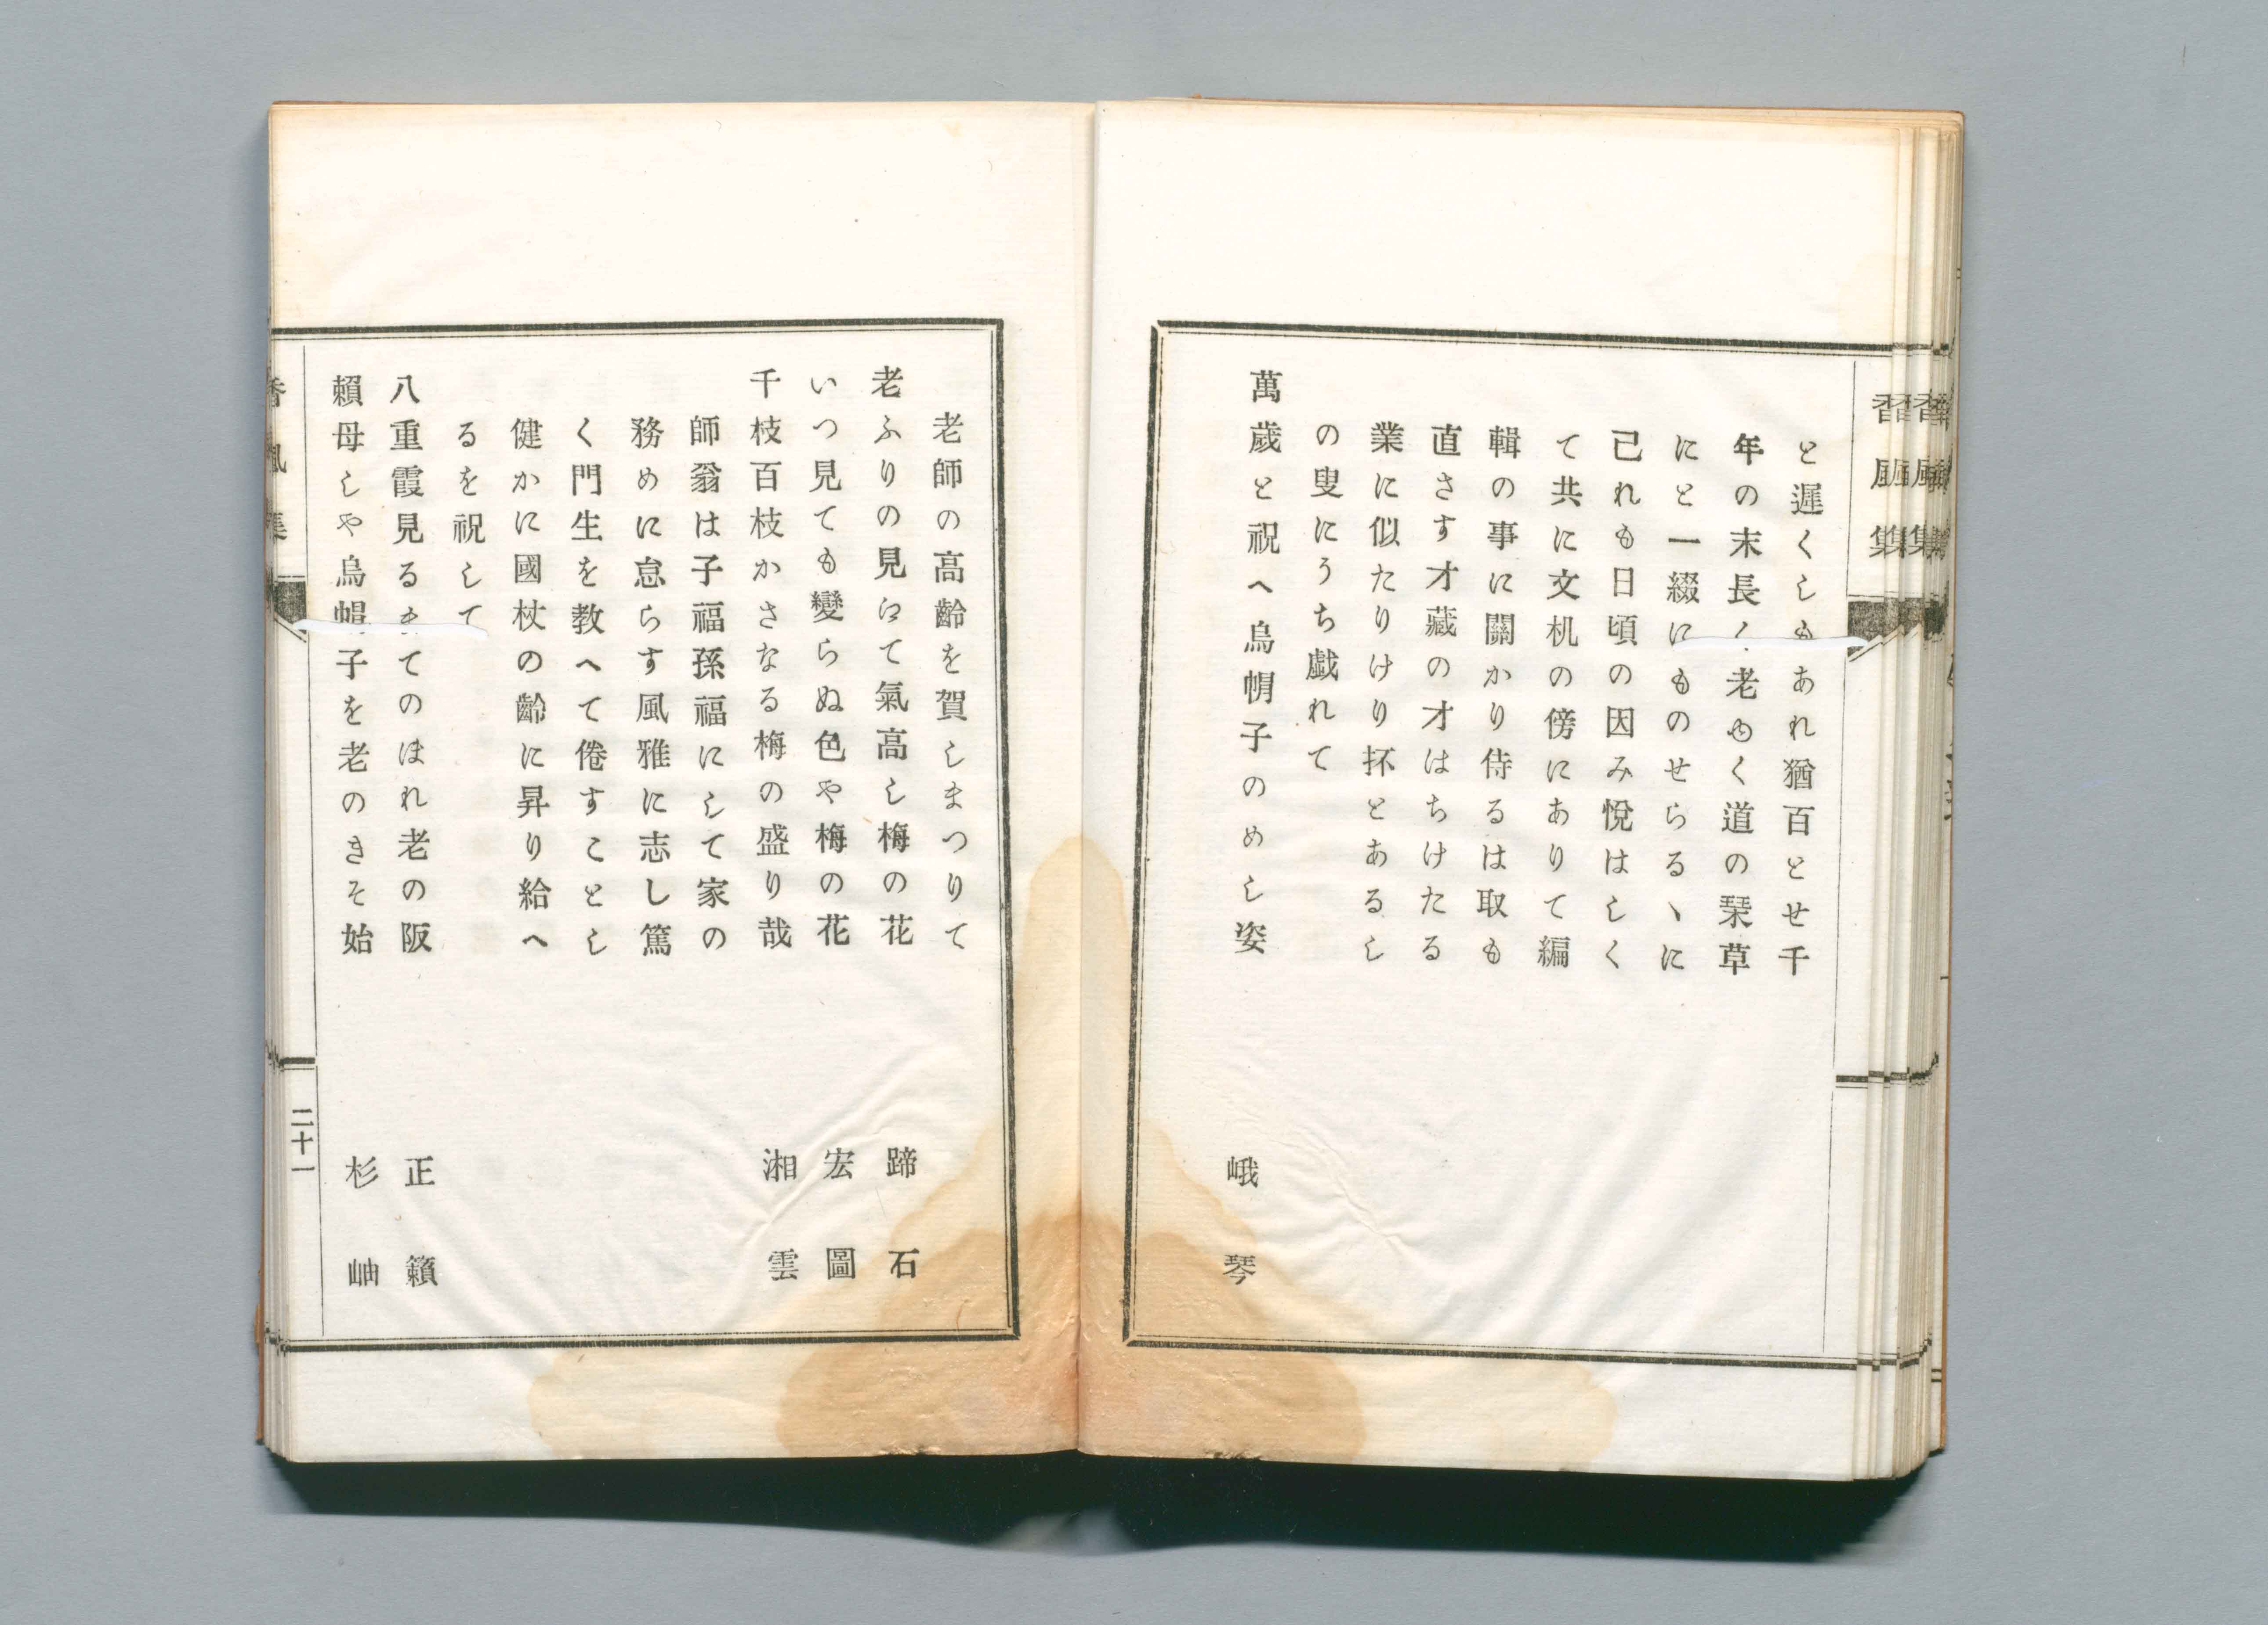 香風集
と遲くしもあれ猶百とせ千
年の末長く老ゆく道の栞草
にと一綴にものせらるゝに
己れも日頃の因み悅はしく
て共に文机の傍にありて編
輯の事に關かり侍るは取も
直さす才藏の才はちけたる
業に似たりけり抔とあるし
の叟にうち戯れて
萬歲と祝へ烏帽子のめし姿　峨琴
老師の高齡を賀しまつりて
老ふりの見にて氣高し梅の花　蹄石
いつ見ても變らぬ色や梅の花　宏圖
千枝百枝かさなる梅の盛り哉　湘雲
師翁は子福孫福にして家の
務めに怠らす風雅に志し篤
く門生を敎へて倦すことし
健かに國杖の齡に昇り給へ
るを祝して
八重霞見るまてのほれ老の阪　正籟
賴母しや烏帽子を老のきそ始　杉岫
香風集
二十一